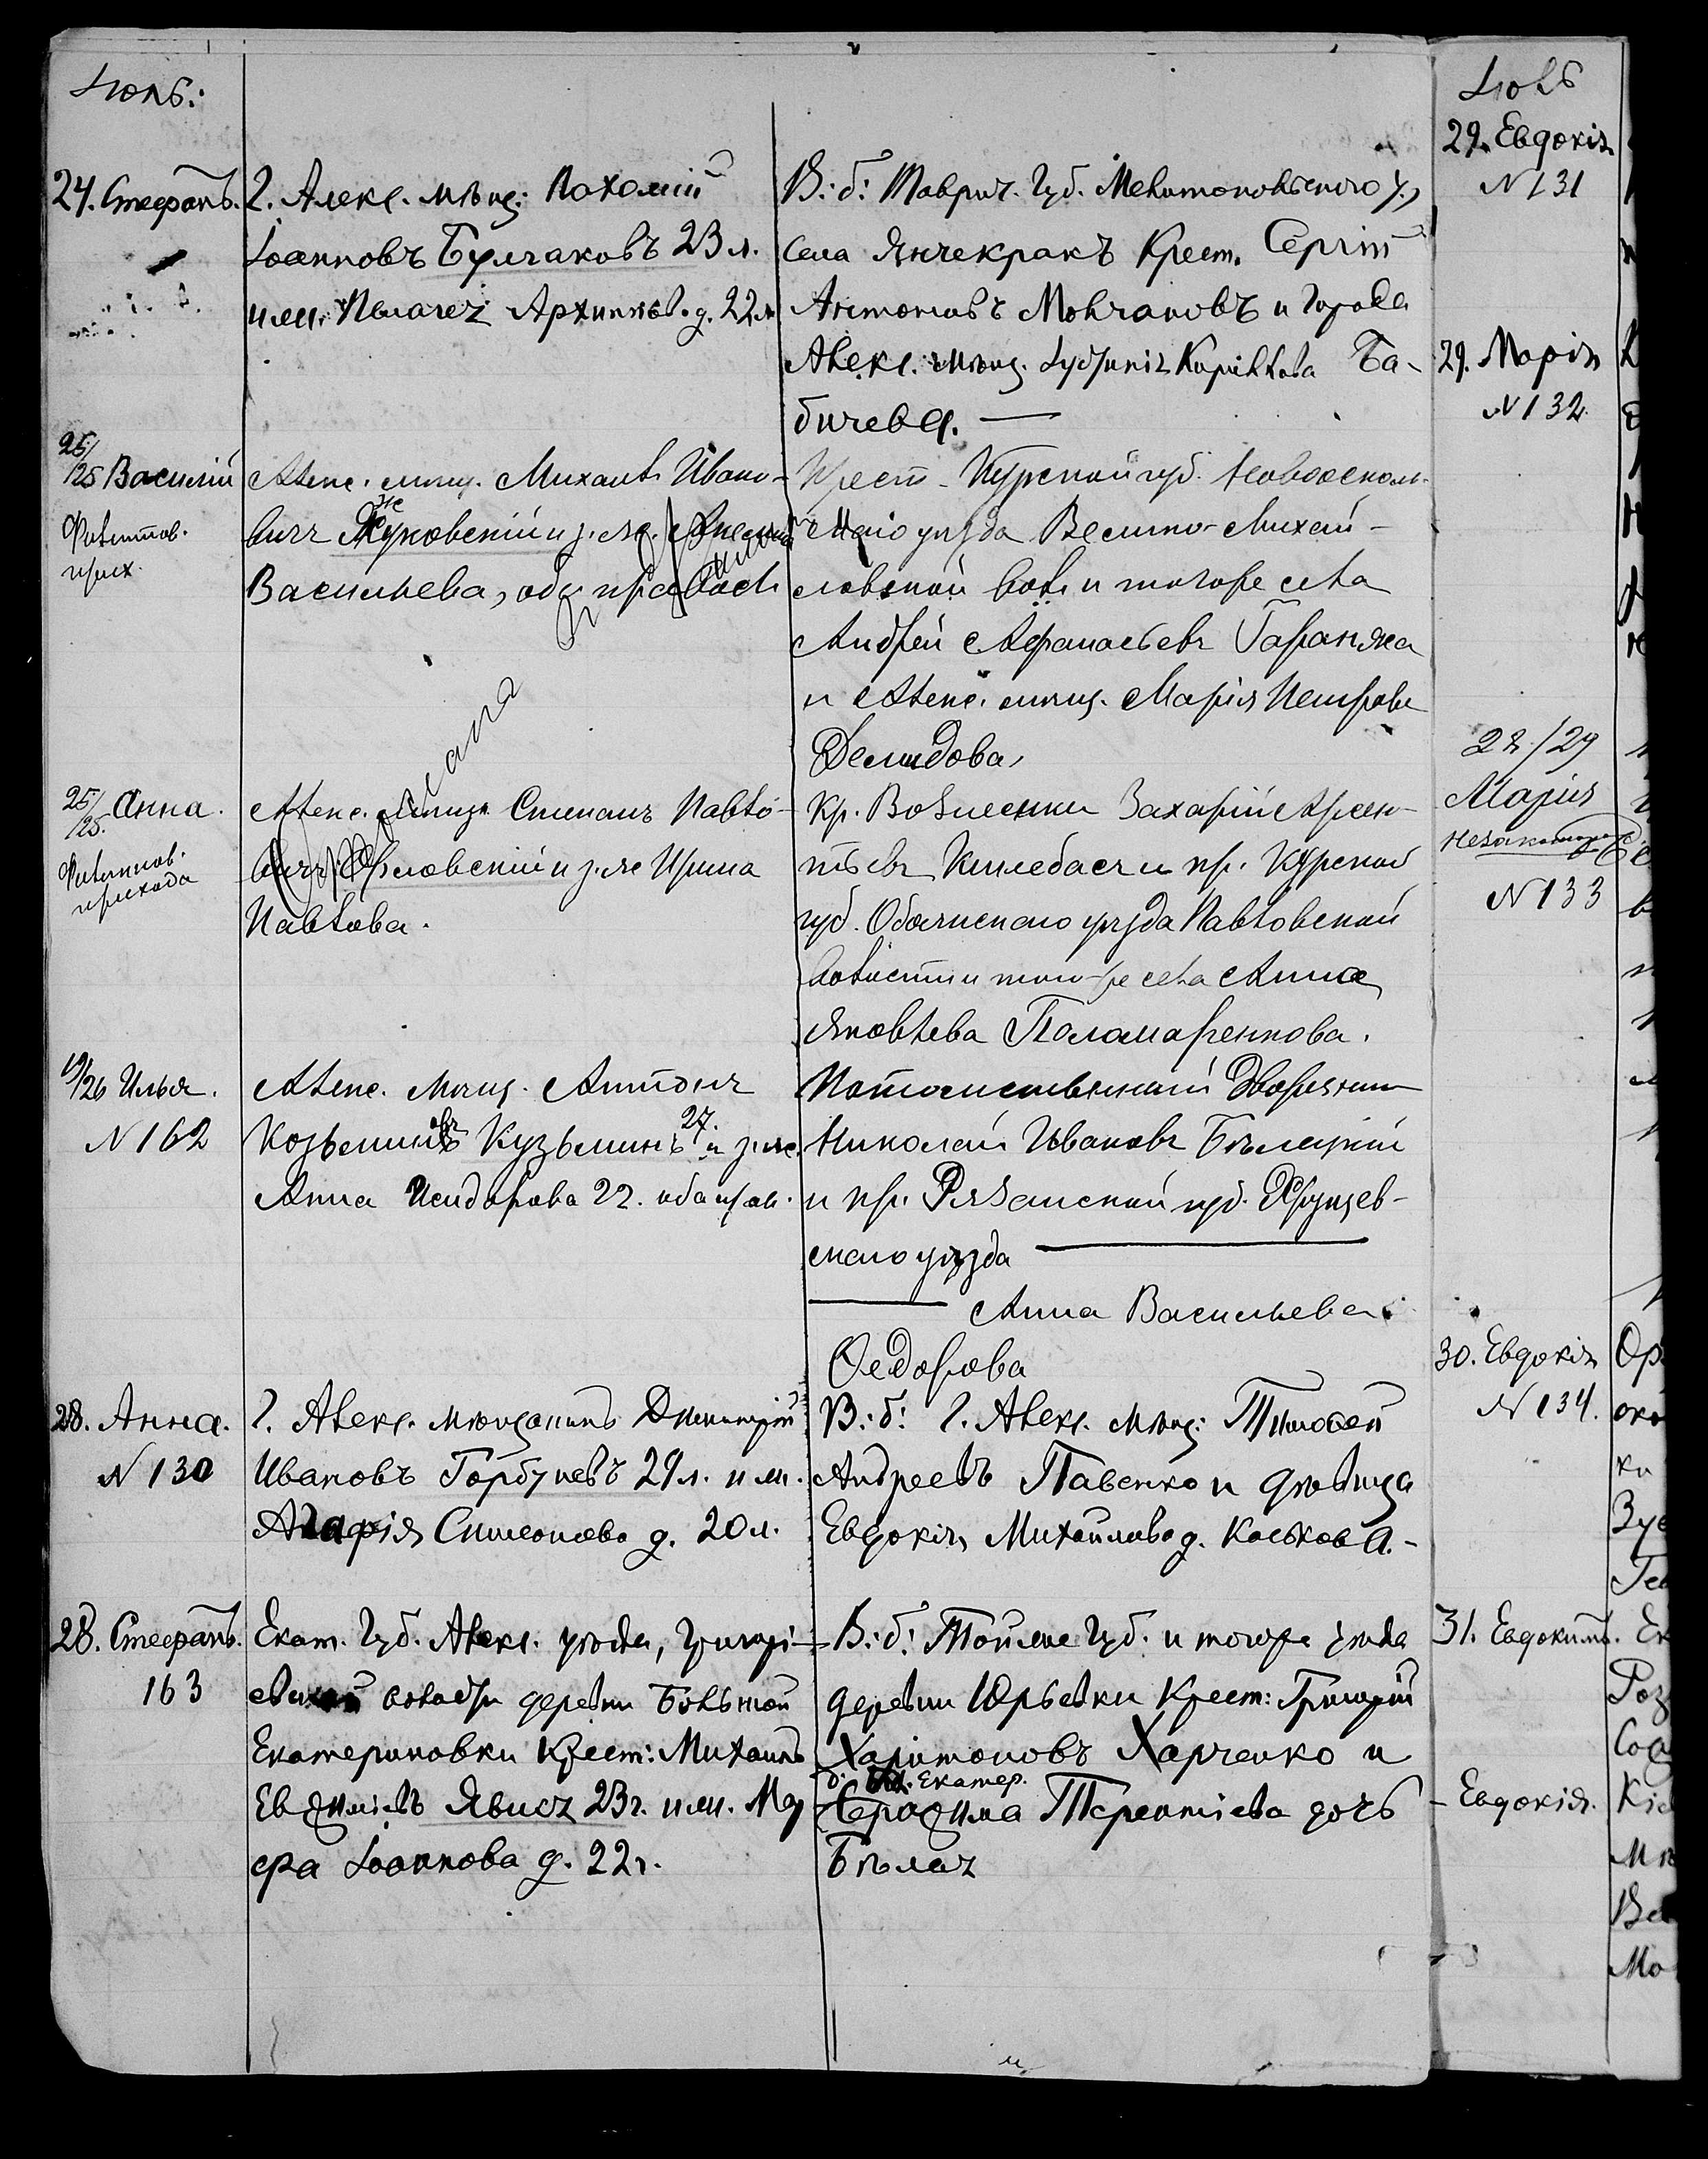 Іюль:
24. Стефанъ.
Г. Алекс. мѣщ: Пахомій
Іоанновъ Булгаковъ 23 л.
и жен. Пелагея Архипов. д. 22 л.
В: б: Таврич. Губ. Мелитопольскаго у.,
села Янчекракъ Крест. Сергій
Антоновъ Молчановъ и города
Алекс. мѣщ. Кирiллова Ба-
бичева. —
25/
/25 Василій
Филиппов.
прих.
Алекс. мѣщ. Михаилъ Ивано-
вичъ Жуковскій и з. ж.
Васильева, оба правосл
Крест. Курской губ. Новооскол-
скаго уѣзда Велико-Михай-
ловской вол. и того же села
Андрей Афанасьевъ Гаранжа
и Алекс. мѣщ. Марія Петрова
Демидова,
25/
/25. Анна.
Филиппов.
прихода
Алекс. Мѣщ. Степанъ Павло-
вичъ Орловскій и з. ж. Ирина
Павлова.
Кр. Вознесенки Захарій Арсен-
тьевъ Килебаса и кр. Курской
губ. Обоянскаго уѣзда Павловской
волости и того-же села Анна
Яковлева Поламаренкова.
19/26 Илья.
N 162
Алекс. Мѣщ. Антонъ
Козьминовъ Кузьминъ 27. и з. ж.
Анна Исидорова 22. оба прав.
Потомственный Дворянин
Николай Ивановъ Бѣлецкій
и кр. Рязанской губ.
скаго уѣзда —
— Анна Васильева
Ѳедорова
28. Анна.
N 130
Г. Алекс. мѣщанинъ Димитрій
Ивановъ Горбуневъ 29 л. и ж.
Агафія Симеонова д. 20 л.
В: б: Г. Алекс. мѣщ: Тимофей
Андреевъ Павенко и дѣвица
Евдокія Михайлова д. Каськова. -
28. Стефанъ.
163
Екат. Губ. Алекс. уѣзда, Григорі-
евской волости деревни Большой
Екатериновки Крест: Михаилъ
Евѳиміевъ Явися 23 г. и ж. Мар
ѳа Іоаннова д. 22 г.
В: б: Тойже Губ. и того же уѣзда
деревни Юрьевки Крест: Григорій
Харитоновъ Харченко и
д. Бол. Екатер.
Серафима Терентіева дочь
Бѣлая
Іюль
29. Евдокія
N 131
29. Марія
N 132.
28/29
Марія
незаконнорож
N 133
30. Евдокія
N 134.
31. Евдокимъ.
- Евдокія.